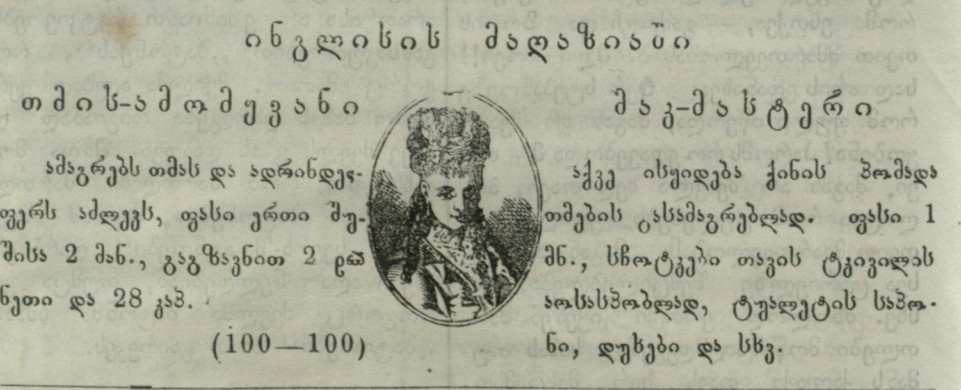 ინგლისის მაღაზიაში
თმის-ამომყვანი
ამაგრებს თმას და ადრინდელ-
ფერს აძლევს, ფასი ერთი შუ-
შისა 2 მან., გაგზავნით 2
ნეთი და 28 კაპ.
(100—100)
მაკ-მასტერი
აქვე ისყიდება ქინის პომადა
თმების ასამაგრებლად. ფასი 1
მნ., სჩოტკები თავის ტკივილის
აოსასპობლად, ტუალეტის საპო-
ნი, დუხები და სხვ.